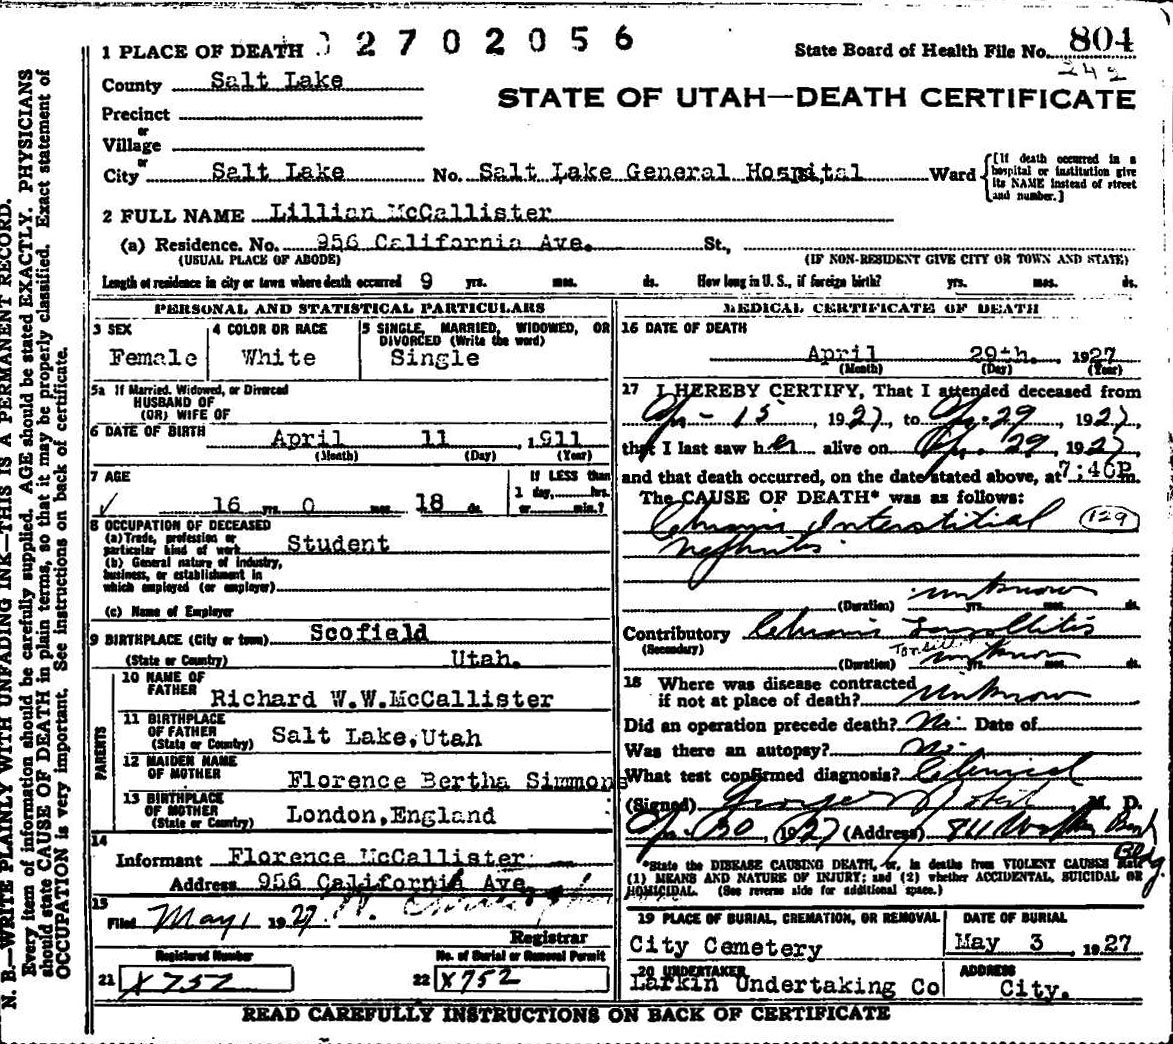 N. B.—WRITE PLAINLY WITH UNFADING INK—THIS IS A PERMANENT RECORD.
Every item of information should be carefully supplied. AGE should be stated EXACTLY. PHYSICIANS
should state CAUSE OF DEATH in plain terms, so that it may be properly classified. Exact statement of
OCCUPATION is very important. See instructions on back of certificate.
1 PLACE OF DEATH 2702056
State Board of Health File No. 804
242
County Salt Lake
STATE OF UTAH—DEATH CERTIFICATE
Precinct
or
Village
or
City Salt Lake No. Salt Lake General Hospital Ward
[If death occurred in a
hospital or institution give
its NAME instead of street
and number.]
2 FULL NAME Lillian McCallister
(a) Residence. No. 956 California Ave. St.,
(USUAL PLACE OF ABODE) (IF NON-RESIDENT GIVE CITY OR TOWN AND STATE)
Length of residence in city or town where death occurred 9 yrs. mos. ds. How long in U. S., if foreign birth? yrs. mos. ds.
PERSONAL AND STATISTICAL PARTICULARS
3 SEX
Female
4 COLOR OR RACE
White
5 SINGLE, MARRIED, WIDOWED, OR
DIVORCED (Write the word)
Single
5a If Married, Widowed, or Divorced
HUSBAND OF
(OR) WIFE OF
6 DATE OF BIRTH April 11, 1911
(Month) (Day) (Year)
7 AGE
16 yrs. 0 mos. 18 ds.
If LESS than
1 day, hrs.
or min.?
8 OCCUPATION OF DECEASED
(a) Trade, profession or
particular kind of work Student
(b) General nature of industry,
business, or establishment in
which employed (or employer)
(c) Name of Employer
9 BIRTHPLACE (City or town) Scofield
(State or Country) Utah.
PARENTS
10 NAME OF
FATHER Richard W.W.McCallister
11 BIRTHPLACE
OF FATHER
(State or Country) Salt Lake,Utah
12 MAIDEN NAME
OF MOTHER Florence Bertha Simmons
13 BIRTHPLACE
OF MOTHER
(State or Country) London,England
14
Informant Florence McCallister
Address 956 California Ave
15
Filed May 1 1927
Registrar
Registered Number
21 X752
No. of Burial or Removal Permit
22 X752
MEDICAL CERTIFICATE OF DEATH
16 DATE OF DEATH
April 29th. 1927
(Month) (Day) (Year)
17 I HEREBY CERTIFY, That I attended deceased from
Ap- 15, 1927, to Ap-29 1927
that I last saw her alive on Ap. 29, 1927
and that death occurred, on the date stated above, at 7:40P m.
The CAUSE OF DEATH* was as follows:
Chronic Interstitial (129)
Nephritis.
unknown
(Duration) yrs. mos. ds.
Contributory Chronic
(Secondary) Tonsill
(Duration) unknown yrs. mos. ds.
18 Where was disease contracted
if not at place of death? unknown
Did an operation precede death? No. Date of
Was there an autopsy? No.
What test confirmed diagnosis? Clinical
(Signed) George M. D.
Ap- 30, 1927 (Address) 811 Bldg.
*State the DISEASE CAUSING DEATH, or, in deaths from VIOLENT CAUSES state
(1) MEANS AND NATURE OF INJURY; and (2) whether ACCIDENTAL, SUICIDAL OR
HOMICIDAL. (See reverse side for additional space.)
19 PLACE OF BURIAL, CREMATION, OR REMOVAL
City Cemetery
DATE OF BURIAL
May 3, 1927
20 UNDERTAKER
Larkin Undertaking Co
ADDRESS
City.
READ CAREFULLY INSTRUCTIONS ON BACK OF CERTIFICATE